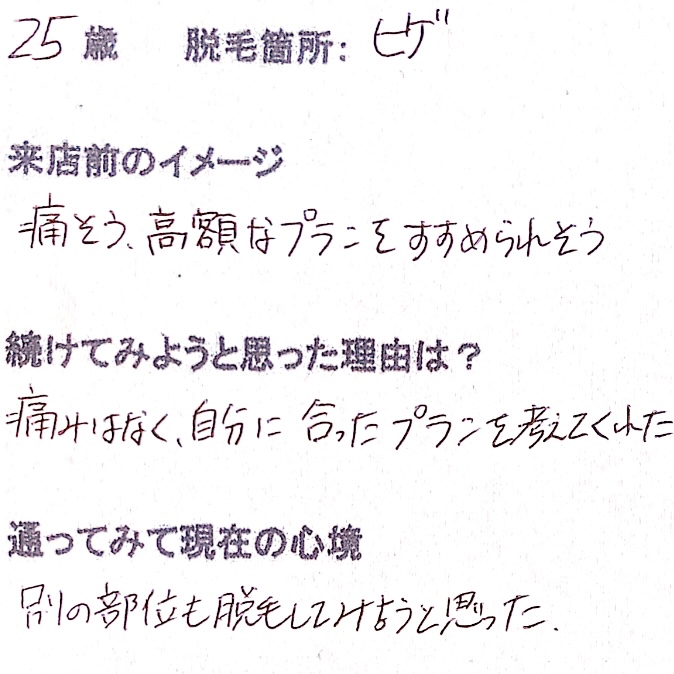 25歳 脱毛箇所: ヒゲ
来店前のイメージ
痛そう、高額なプランをすすめられそう
続けてみようと思った理由は?
痛みはなく、自分に合ったプランを考えてくれた
通ってみて現在の心境
別の部位も脱毛してみようと思った.